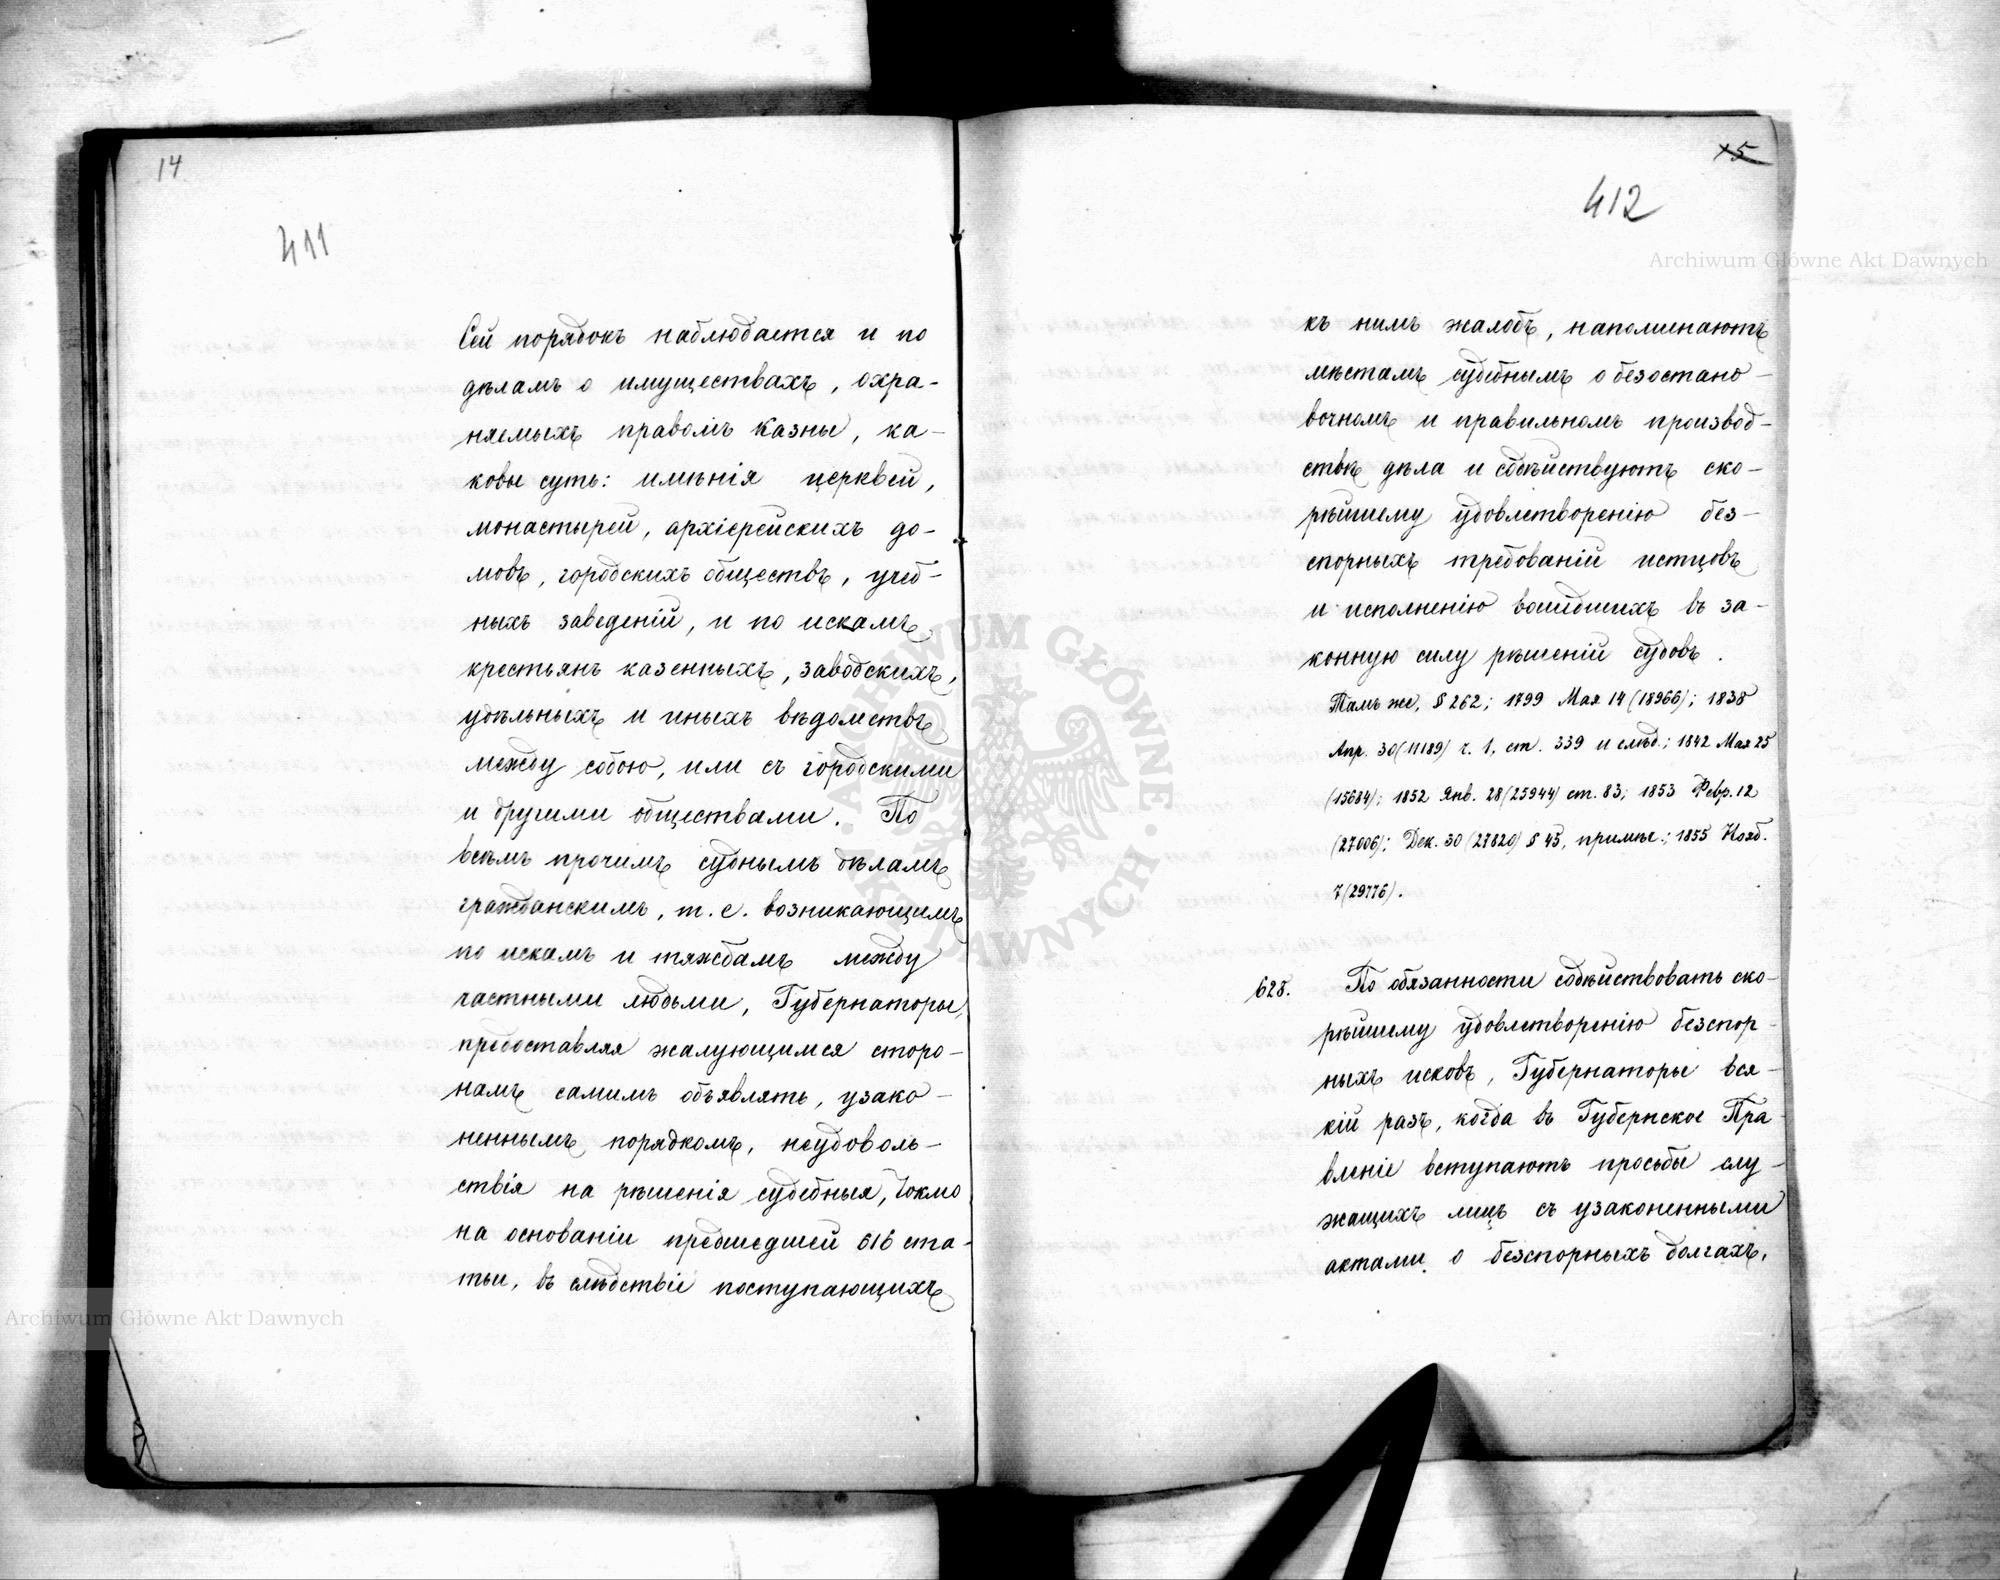 14
411
Сей порядокъ наблюдается и по
дѣламъ о имуществахъ, охра-
няемыхъ правомъ казны, ка-
ковы суть: имѣнія церквей,
монастырей, архіерейскихъ до-
мовъ, городскихъ обществъ, учеб-
ныхъ заведеній, и по искамъ
крестьянъ казенныхъ, заводскихъ,
удѣльныхъ и иныхъ вѣдомствъ
между собою, или съ городскими
и другими обществами. По
всѣмъ прочимъ суднымъ дѣламъ
гражданскимъ, т. е. возникающимъ
по искамъ и тяжбамъ между
частными людьми, Губернаторы,
предоставляя жалующимся сторо-
намъ самимъ объявлять, узако-
неннымъ порядкомъ, неудоволь-
ствія на рѣшенія судебныя, токмо
на основаніи предшедшей 616 ста-
тьи, въ слѣдствіе поступающихъ
15
412
къ нимъ жалобъ, напоминаютъ
мѣстамъ судебнымъ о безостано-
вочномъ и правильномъ производ-
ствѣ дѣла и содѣйствуютъ ско-
рѣйшему удовлетворенію без-
спорныхъ требованій истцовъ
и исполненію вошедшихъ въ за-
конную силу рѣшеній судовъ.
Тамъ же, § 262; 1799 Мая 14 (18966); 1838
Апр. 30 (11189) ч. 1, ст. 339 и слѣд.; 1842 Мая 25
(15684); 1852 Янв. 28 (25944) ст. 83; 1853 Февр. 12
(27006); Дек. 30 (27820) § 45, примѣч.; 1855 Нояб.
7 (29776).
628. По обязанности содѣйствовать ско-
рѣйшему удовлетворенію безспор-
ныхъ исковъ, Губернаторы вся-
кій разъ, когда въ Губернское Пра-
вленіе вступаютъ просьбы слу-
жащихъ лицъ съ узаконенными
актами о безспорныхъ долгахъ,
Archiwum Główne Akt Dawnych
Archiwum Główne Akt Dawnych
ARCHIWUM GŁÓWNE AKT DAWNYCH